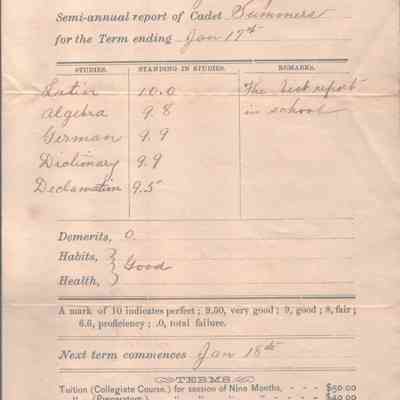 Semi-annual report of Cadet Summers
for the Term ending Jan 17th
STUDIES. STANDING IN STUDIES. REMARKS.
Latin 10.0 The best report
Algebra 9.8 in school
German 9.9
Dictionary 9.9
Declamation 9.5
Demerits, 0.
Habits, } Good
Health, }
A mark of 10 indicates perfect; 9.50, very good; 9, good; 8, fair;
6.6, proficiency; .0, total failure.
Next term commences Jan 18th
TERMS
Tuition (Collegiate Course.) for session of Nine Months, - - - $50.00
" (Preparatory.) " " " " - - $40.00